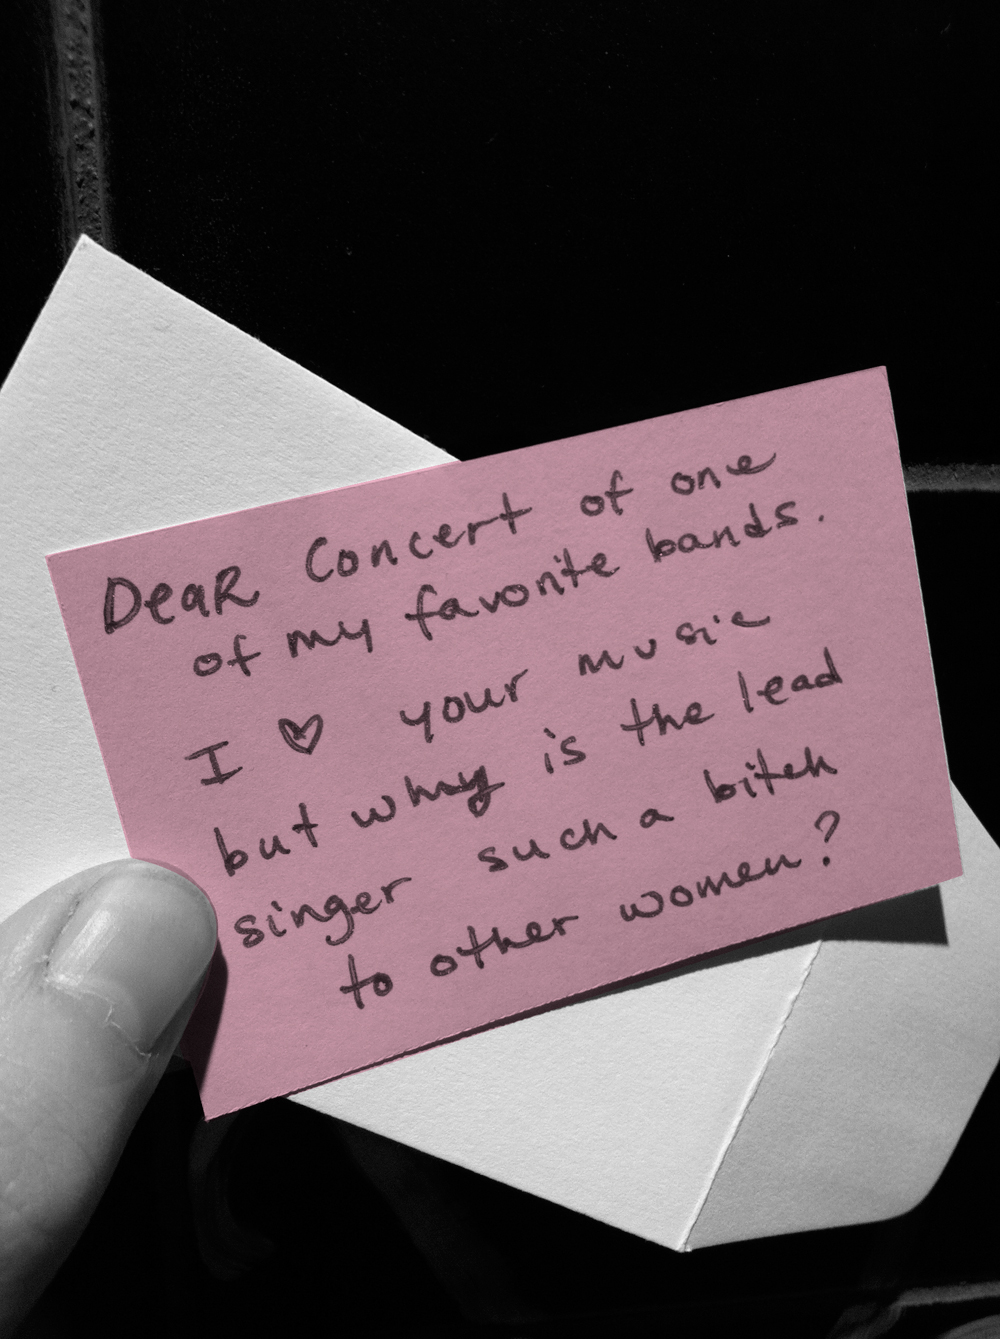 Dear Concert of one
of my favorite bands.
I ♡ your music
but why is the lead
singer such a bitch
to other women?